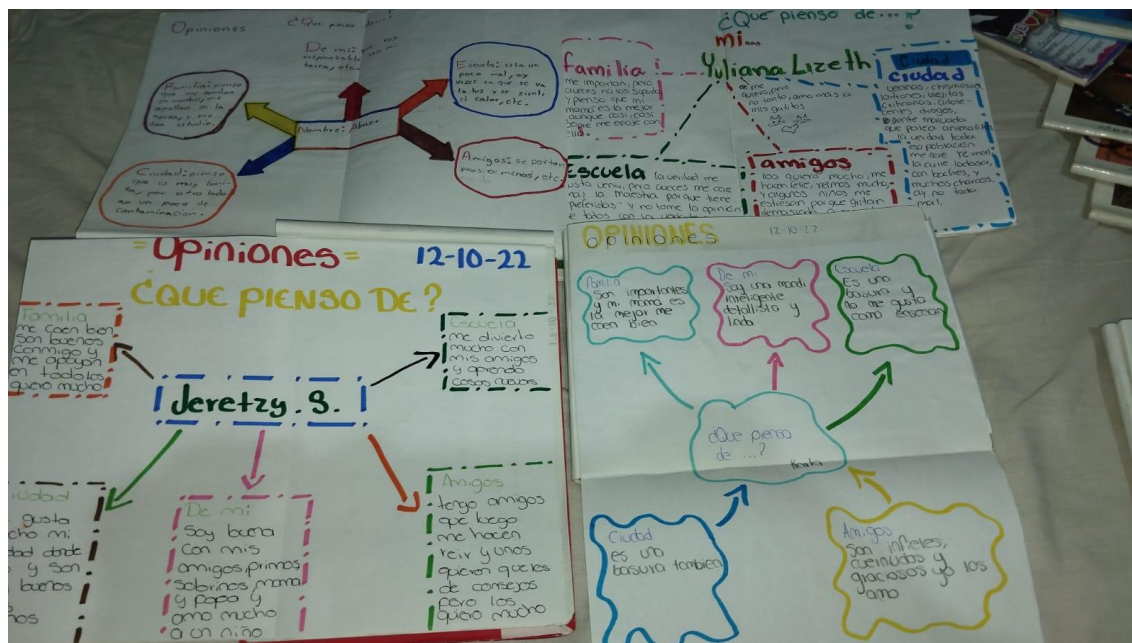 Opiniones
¿Que pienso de...?
De mi: que soy
responsable
Familia: pienso
que
mucho, me
apoyan en
y me dan
estudio.
Nombre: Abner
Escuela: esta un
poco mal, ay
vezes en que se va
la luz y se siente
el calor, etc.
Ciudad: pienso
que es muy boni-
ta, por otro lado
ay un poco de
contaminacion.
Amigos: se portan
mas o menos, etc.
¿Que pienso de...?
mi...
Yuliana Lizeth
me
quiero, pero
no tanto, amo más a
mis gatitos
familia
me importan, pero
aveces no los soporto
y pienso que mi
mamá es la mejor
aunque casi, casi
me enoje con
ella.
Ciudad
ciudad
vecinos chismosos
ratrones, viejitas
criticonas, adole-
centes, drogas,
gente malvada
que patea animalitos
la verdad toda
esa poblacion
me cae re mal
la calle lodosa,
con baches, y
muchos charcos,
ay no todo
mal.
Escuela
la verdad me
usta venir, pero aveces me cae
mal la maestra porque tiene
"preferidas" y no tome la opinión
e todos con
amigos
los quiero mucho, me
hacen reir, reimos mucho,
y algunos niños me
estresan porque gritan
demasiado
=Opiniones=
12-10-22
¿QUE PIENSO DE?
Familia
me caen bien
son buenos
conmigo y
me apoyan
en todo los
quiero mucho
Escuela
me divierto
mucho con
mis amigos
y aprendo
cosas nuevas
Jeretzy. S.
iudad
gusta
cho mi
dad donde
y son
buenos
nos
De mi
Soy buena
con mis
amigos, primos
sobrinos, mama
y papa y
amo mucho
a un niño
Amigos
tengo amigos
que luego
me hacen
reir y unos
quieren que les
de consejos
pero los
quiero mucho
OPINIONES
12-10-22
Familia
Son importantes
y mi mamá es
la mejor me
caen bien
De mi
Soy una
inteligente
detallista y
linda
Escuela
Es una
basura y
no me gusta
como enseñan
¿Que pienso
de ...?
Ciudad
es una
basura tambien
Amigos
son infieles,
cuernudos y
graciosos y los
amo